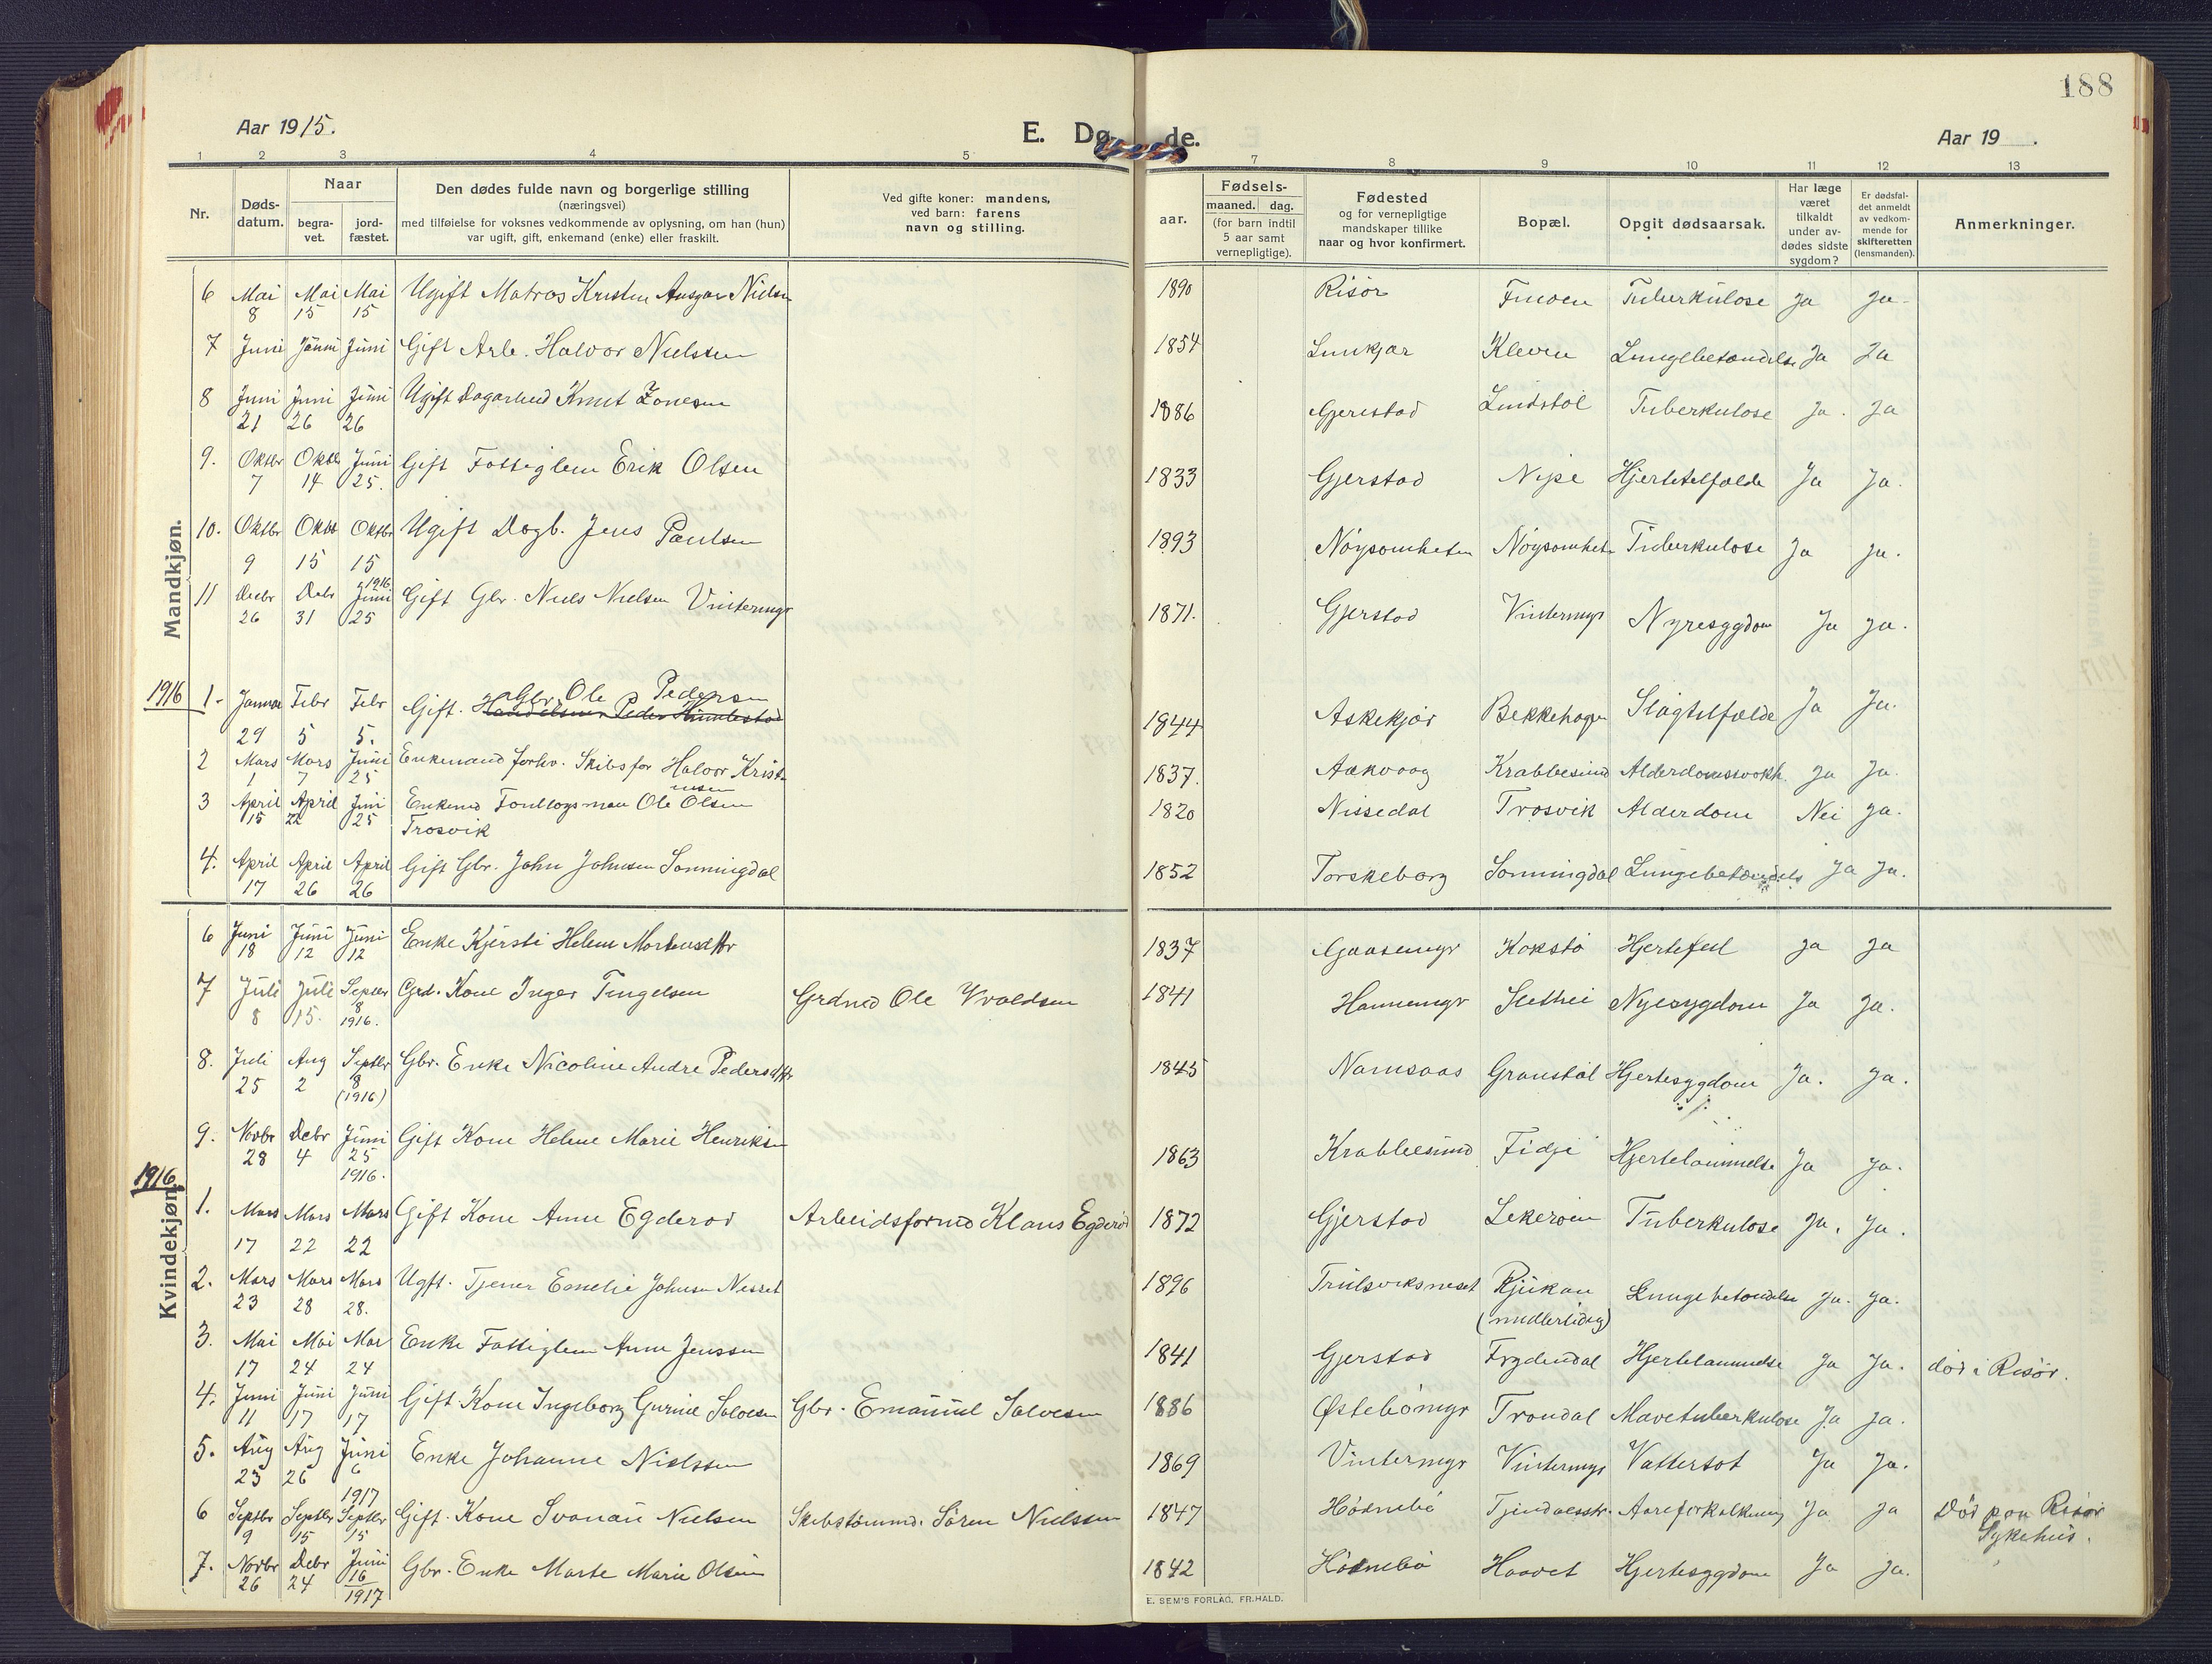 188
Aar 1915.
E. Dø de.
Aar 19 .
1 2 3 4 5 7 8 9 10 11 12 13
Nr.
Døds-
datum.
Naar
begra-
vet.
jord-
fæstet.
Den dødes fulde navn og borgerlige stilling
(næringsvei)
med tilføielse for voksnes vedkommende av oplysning, om han (hun)
var ugift, gift, enkemand (enke) eller fraskilt.
Ved gifte koner: mandens,
ved barn: farens
navn og stilling.
aar.
Fødsels-
maaned. dag.
(for barn indtil
5 aar samt
vernepligtige).
Fødested
og for vernepligtige
mandskaper tillike
naar og hvor konfirmert.
Bopæl.
Opgit dødsaarsak.
Har læge
været
tilkaldt
under av-
dødes sidste
sygdom?
Er dødsfal-
det anmeldt
av vedkom-
mende for
skifteretten
(lensmanden).
Anmerkninger.
Mandkjøn.
6 Mai Mai Mai Ugift Matros Kristen Ansgar Nielsen 1890 Risør Tuberkulose Ja Ja
8 15 15
7 Juni Juni Juni Gift Arb. Halvor Nielsen 1854 Kleven Lungebetændelse Ja Ja
8 Juni Juni Juni Ugift Knut 1886 Gjerestad Lindstøl Tuberkulose Ja. Ja
21 26 26
9. Oktbr Oktb Juni Gift Fattiglem Erik Olsen 1833 Gjerstad Nipe Hjertetilfælde Ja Ja.
7 14 25.
10. Oktbr Oktb Oktbr Ugift Dagb. Jens Paulsen 1893 Nøysomheten Nøysomhet Tuberkulose Ja Ja.
9 15 15
11 Decbr Debr 1916 Juni Gift Gbr. Niels Nielsen Vintermyr 1871. Gjerstad Vintermyr Nyresygdom Ja Ja.
26 31 25
1916 1. Januar Febr Febr Gift. Gbr. Ole Pedersen 1844 Askekjær Bekkehagen Slagtilfælde Ja Ja.
29 5 5.
2 Mars Mars Juni Enkemand forhv. Skibsfør Halvor Krist- 1837. Aakvaag Krabbesund Ja Ja.
1 7 25 ensen
3 April April Juni Ole Olsen 1820 Nissedal Trosvik Alderdom Nei Ja.
15 22 25 Trosvik
4. April April April Gift Gbr. John Johnsen Sonningdal 1852 Torskeborg Sonningdal Lungebetændels Ja Ja.
17 26 26
Kvindekjøn.
6 Juni Juni Juni Enke Kjersti Helene 1837 Gaasemyr Kokstø Hjertefeil Ja Ja
18 12 12
7 Juli Juli Septbr Grd. Kone Inger Tengelsen Grdmd Ole 1841 Hannemyr Slethei Nyresygdom Ja Ja.
8 15. 8
1916.
8. Juli Aug Septbr Gbr. Enke Nicoline Andre Pedersdttr 1845 Namsaas Granstøl Hjertesygdom Ja. Ja.
25 2 8
(1916)
9. Novbr Debr Juni Gift Kone Helene Marie Henriksen 1863 Krabbesund Fidje Hjertelammelse Ja Ja.
28 4 25
1916.
1916.
1. Mars Mars Mars Gift Kone Anne Egderød Arbeidsformd Klaus Egderød 1872 Gjerstad Lekerøen Tuberkulose Ja. Ja.
17 22 22
2. Mars Mars Mars Ugft. Tjener Emelie Johnsen Nesset 1896 Trulsviksneset Rjukan Lungebetændelse Ja. Ja.
23 28 28. (midlertidig)
3. Mai Mai Mai Enke Fattiglem Anne Jenssen 1841 Gjerstad Frydendal Hjertelammelse Ja Ja. død i Risør.
17 24 24
4. Juni Juni Juni Gift Kone Ingeborg Gurine Salvesen Gbr. Emanuel Salvesen 1886 Østebømyr Trondal Mavetuberkulose Ja Ja.
11 17 17
5. Aug Aug Juni Enke Johanne Nielssen 1869 Vintermyr Vintermyr Vattersot Ja Ja.
23 26 6
1917
6 Septbr Septbr Septbr Gift. Kone Svanau Nielsen Skibstømmd. Søren Nielssen 1847 Hødnebø Aareforkalkning Ja Ja Død paa Risør
9 15 15 Sykehus.
7. Novbr Debr Juni Gbr. Enke Marte Marie Olsen 1842 Hødnebø Haavet Hjertesygdom Ja Ja.
26 24 16
1917
E. SEM'S FORLAG, FR.HALD.